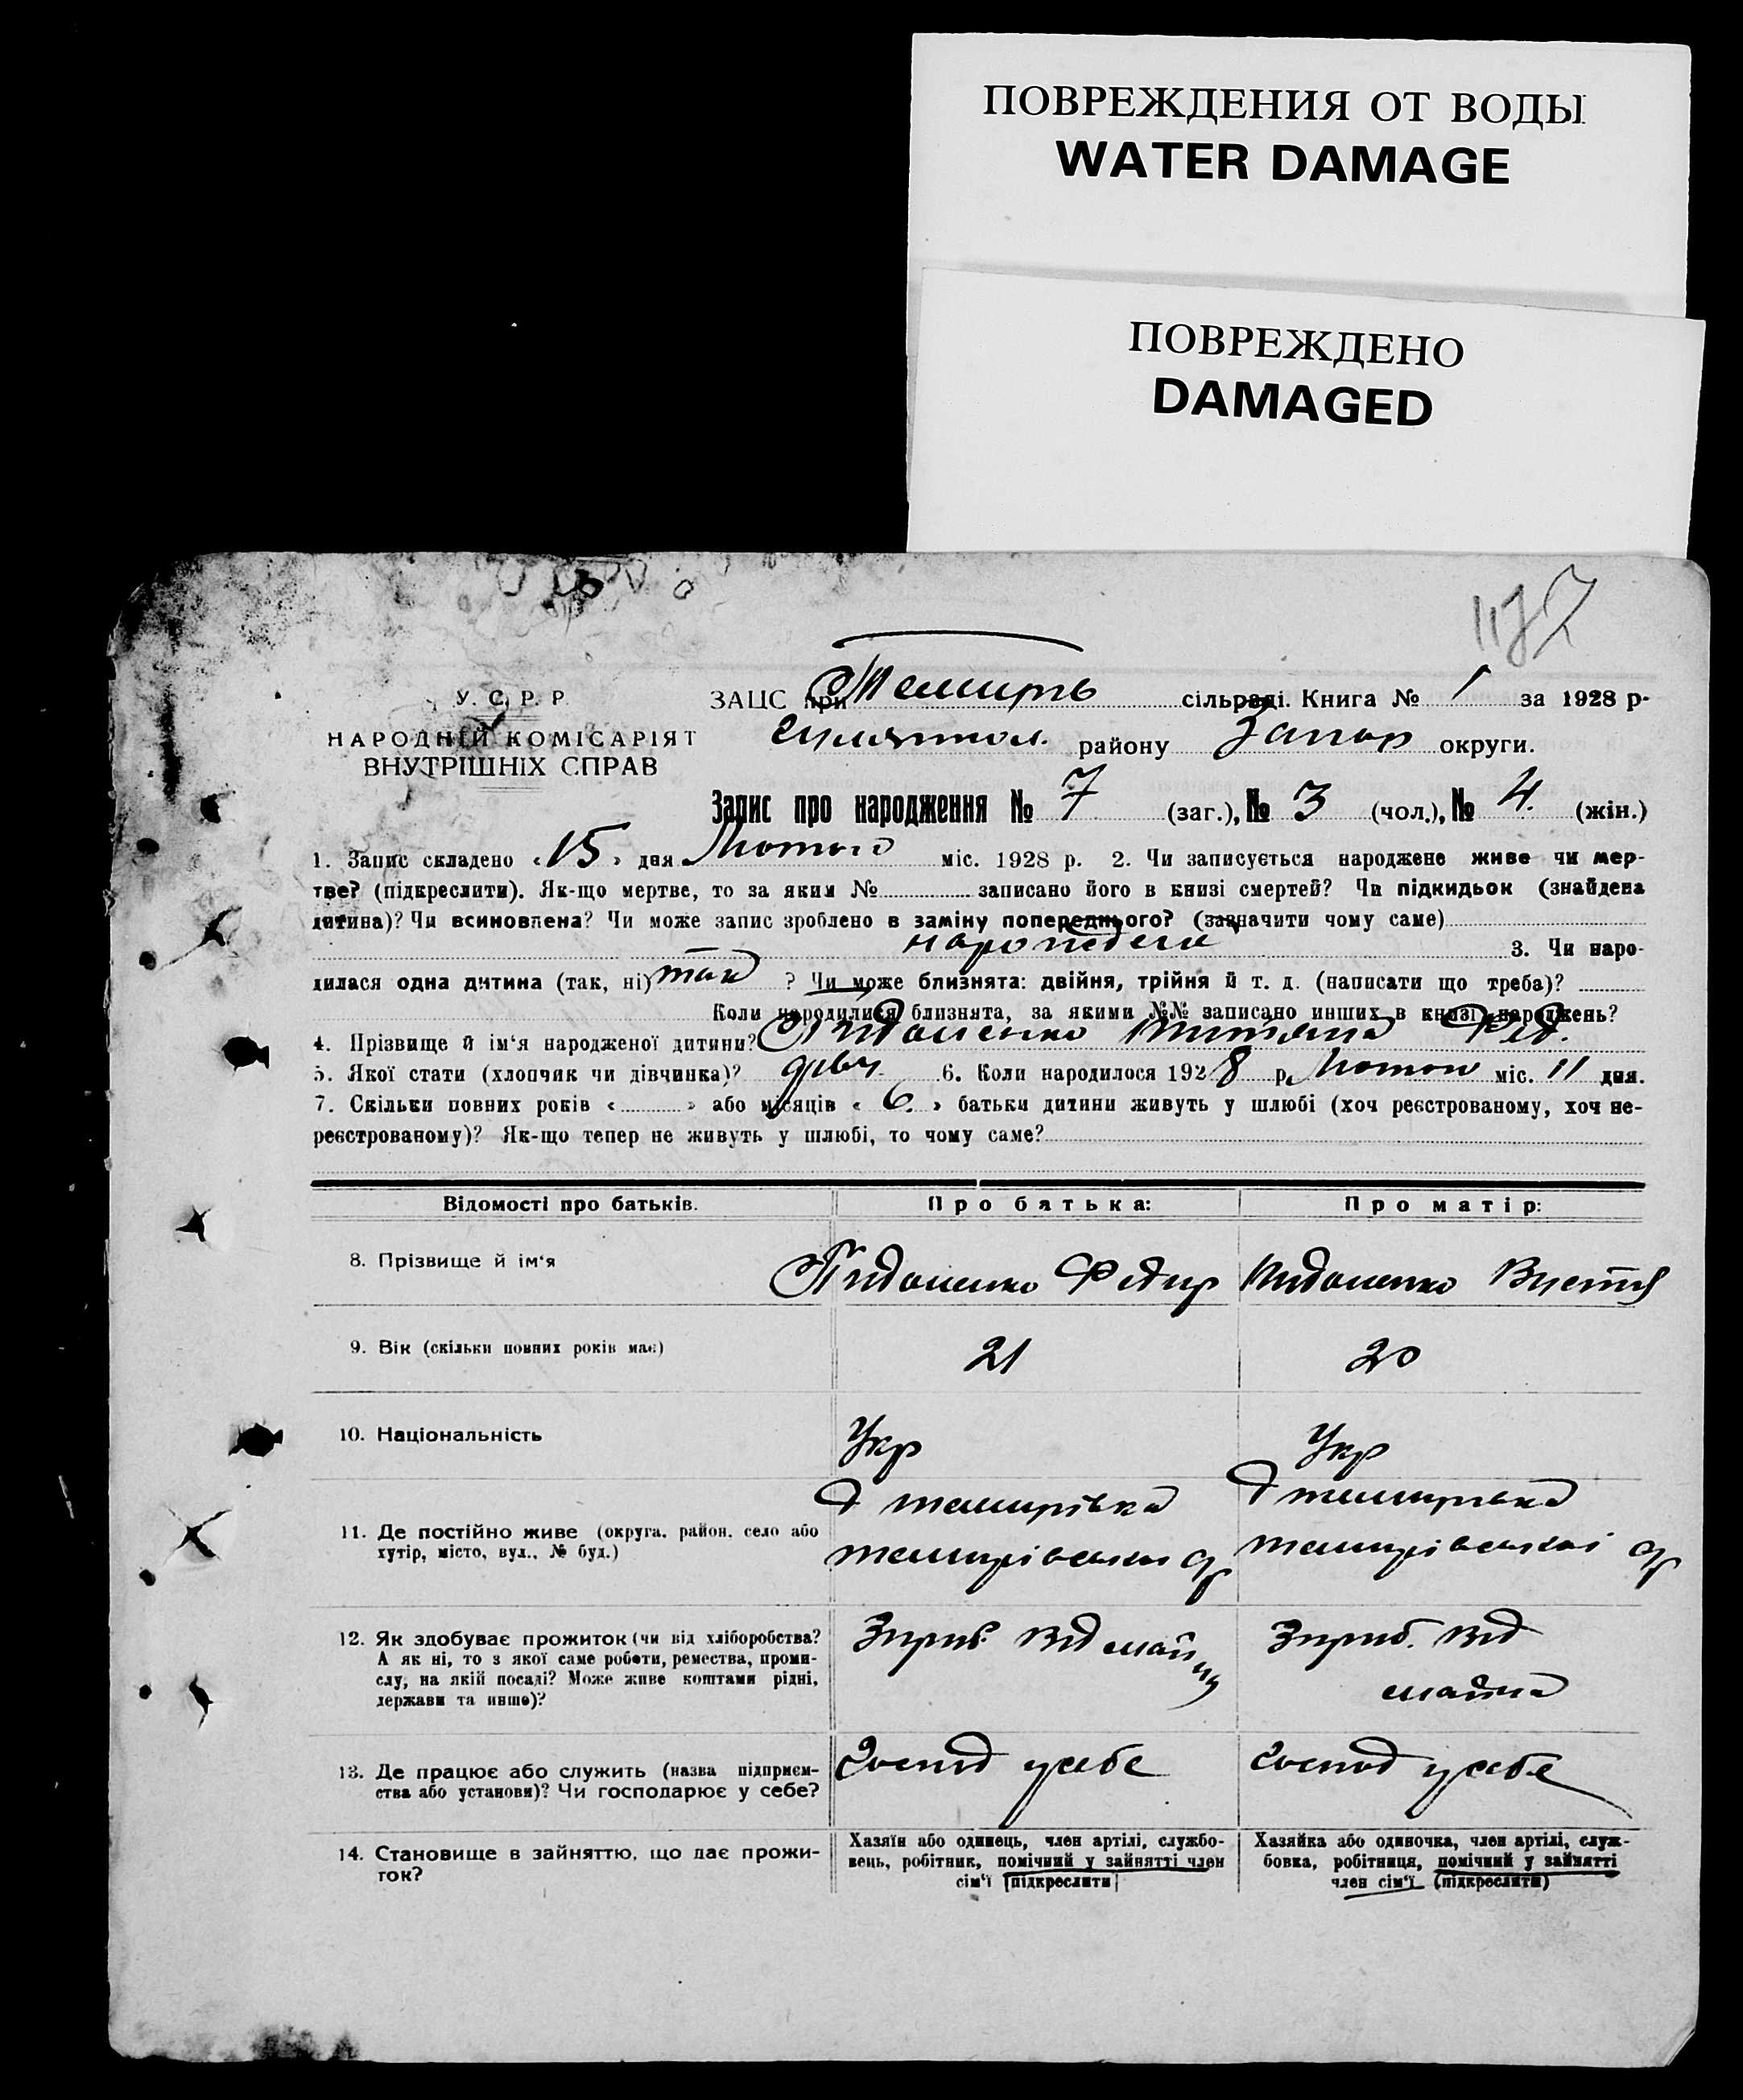 ПОВРЕЖДЕНИЯ ОТ ВОДЫ
WATER DAMAGE
ПОВРЕЖДЕНО
DAMAGED
117
У. С. Р. Р.
НАРОДНІЙ КОМІСАРІЯТ
ВНУТРІШНІХ СПРАВ
ЗАЦС при Темирів сільраді. Книга № 1 за 1928 р.
району Запор округи.
Запис про народження № 7 (заг.), № 3 (чол.), № 4. (жін.)
1. Запис складено «15» дня Лютого міс. 1928 р. 2. Чи записується народжене живе чи мер-
тве? (підкреслити). Як-що мертве, то за яким № записано його в книзі смертей? Чи підкидьок (знайдена
дитина)? Чи всиновлена? Чи може запис зроблено в заміну попереднього? (зазначити чому саме)
3. Чи наро-
дилася одна дитина (так, ні) так ? Чи може близнята: двійня, трійня й т. д. (написати що треба)?
Коли народилися близнята, за якими №№ записано инших в книзі народжень?
4. Прізвище й ім'я народженої дитини? Фед.
5. Якої стати (хлопчяк чи дівчинка)? дівч. 6. Коли народилося 1928 р. Лютого міс. 11 дня.
7. Скільки повних років « » або місяців « 6. » батьки дитини живуть у шлюбі (хоч реєстрованому, хоч не-
реєстрованому)? Як-що тепер не живуть у шлюбі, то чому саме?
Відомості про батьків. Про батька: Про матір:
8. Прізвище й ім'я Федир
9. Вік (скільки повних років має) 21 20
10. Національність Укр Укр
11. Де постійно живе (округа, район, село або
хутір, місто, вул., № буд.)
д темирівка д темирівка
темирівської ср темирівської ср
12. Як здобуває прожиток (чи від хліборобства?
А як ні, то з якої саме роботи, ремества, проми-
слу, на якій посаді? Може живе коштами рідні,
держави та инше)?
від майна від
майна
13. Де працює або служить (назва підприєм-
ства або установи)? Чи господарює у себе?
Господ у себе Господ у себе
14. Становище в зайняттю, що дає прожи-
ток?
Хазяїн або одинець, член артілі, службо-
вець, робітник, помічний у зайнятті член
сім'ї (підкреслити)
Хазяйка або одиночка, член артілі, служ-
бовка, робітниця, помічний у зайнятті
член сім'ї (підкреслити)